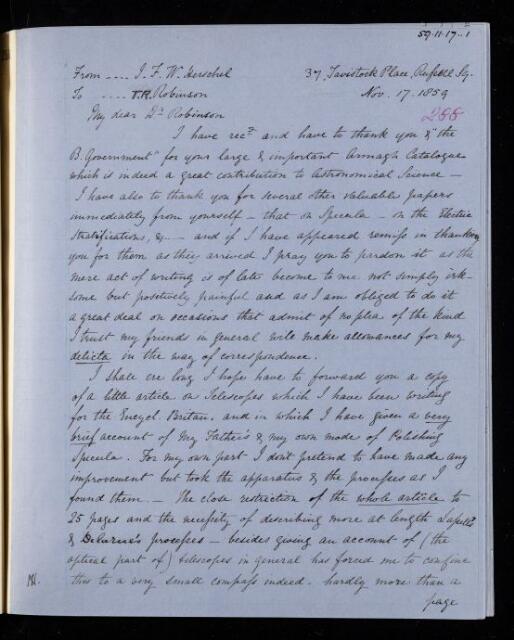 59.11.17..1
From .... J. F. W. Herschel 37, Tavistock Place, Russell Sq.
To .... T.R. Robinson Nov. 17. 1859
266
My dear Dr Robinson
I have recd and have to thank you & "the
B. Government" for your large & important Armagh Catalogue
which is indeed a great contribution to Astronomical Science —
I have also to thank you for several other valuable papers
immediately from yourself — that on Specula — on the Electric
Stratifications, &c — and if I have appeared remiss in thanking
you for them as they arrived I pray you to pardon it as the
mere act of writing is of late become to me not simply irk-
some but positively painful and as I am obliged to do it
a great deal on occasions that admit of no plea of the kind
I trust my friends in general will make allowances for my
delicta in the way of correspondence.
I shall ere long I hope have to forward you a copy
of a little article on Telescopes which I have been writing
for the Encycl. Britan. and in which I have given a very
brief account of My Father's & my own mode of Polishing
Specula. For my own part I don't pretend to have made any
improvement but took the apparatus & the processes as I
found them — The close restriction of the whole article to
25 pages and the necessity of describing more at length Lassell's
& DeLarue's processes — besides giving an account of (the
optical part of) telescopes in general has forced me to confine
this to a very small compass indeed. hardly more than a
page